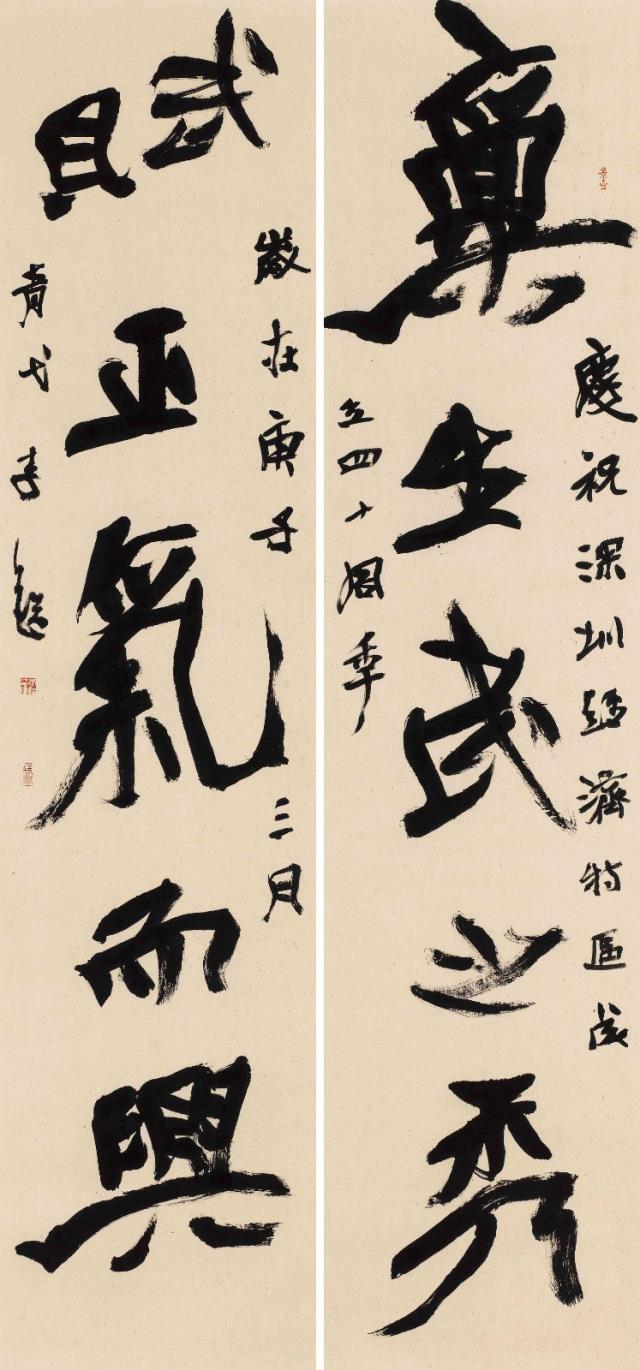 生武之秀
慶祝深圳經濟特區成
立四十周年
賦正氣而興
歲在庚子三月
青弋李